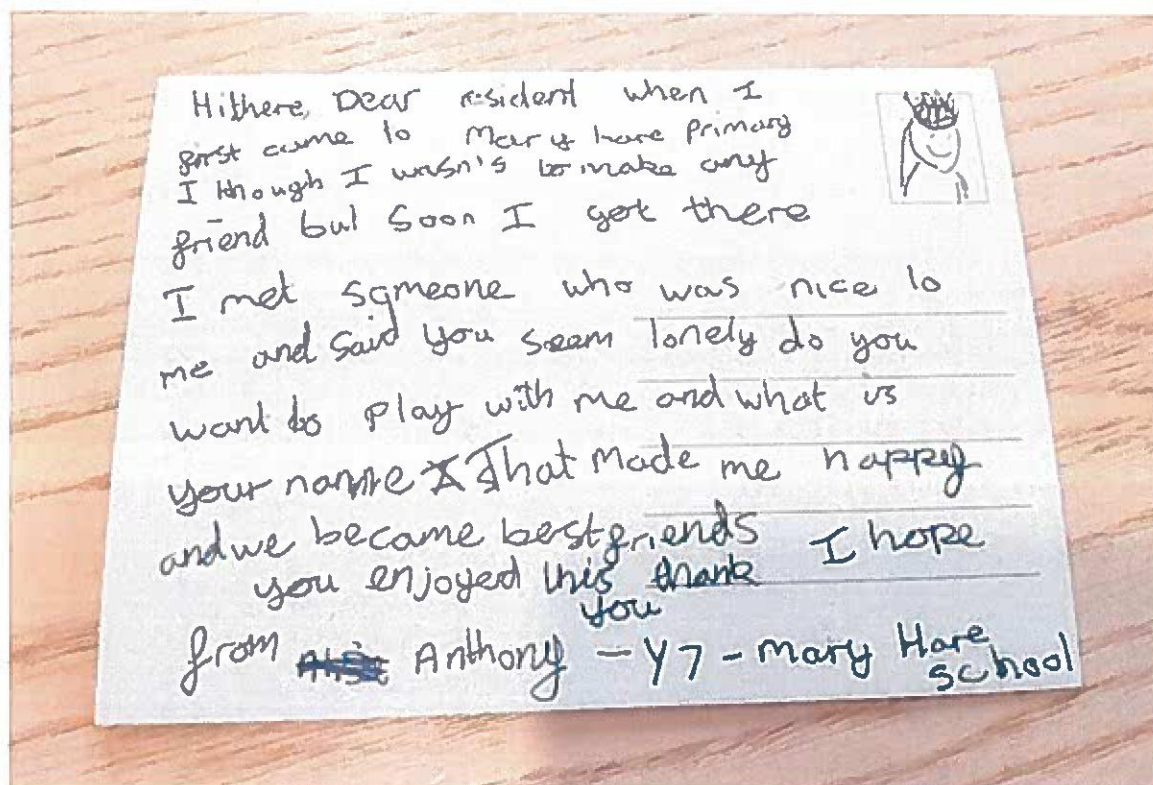 Hi there, Dear resident when I
first came to Mary hare Primary
I though I wasn's to make any
friend but soon I got there
I met someone who was nice to
me and said you seem lonely do you
want to play with me and what is
your name That made me happy
and we became best friends I hope
you enjoyed this thank
you
from Anthony - Y7 - Mary Hare
school